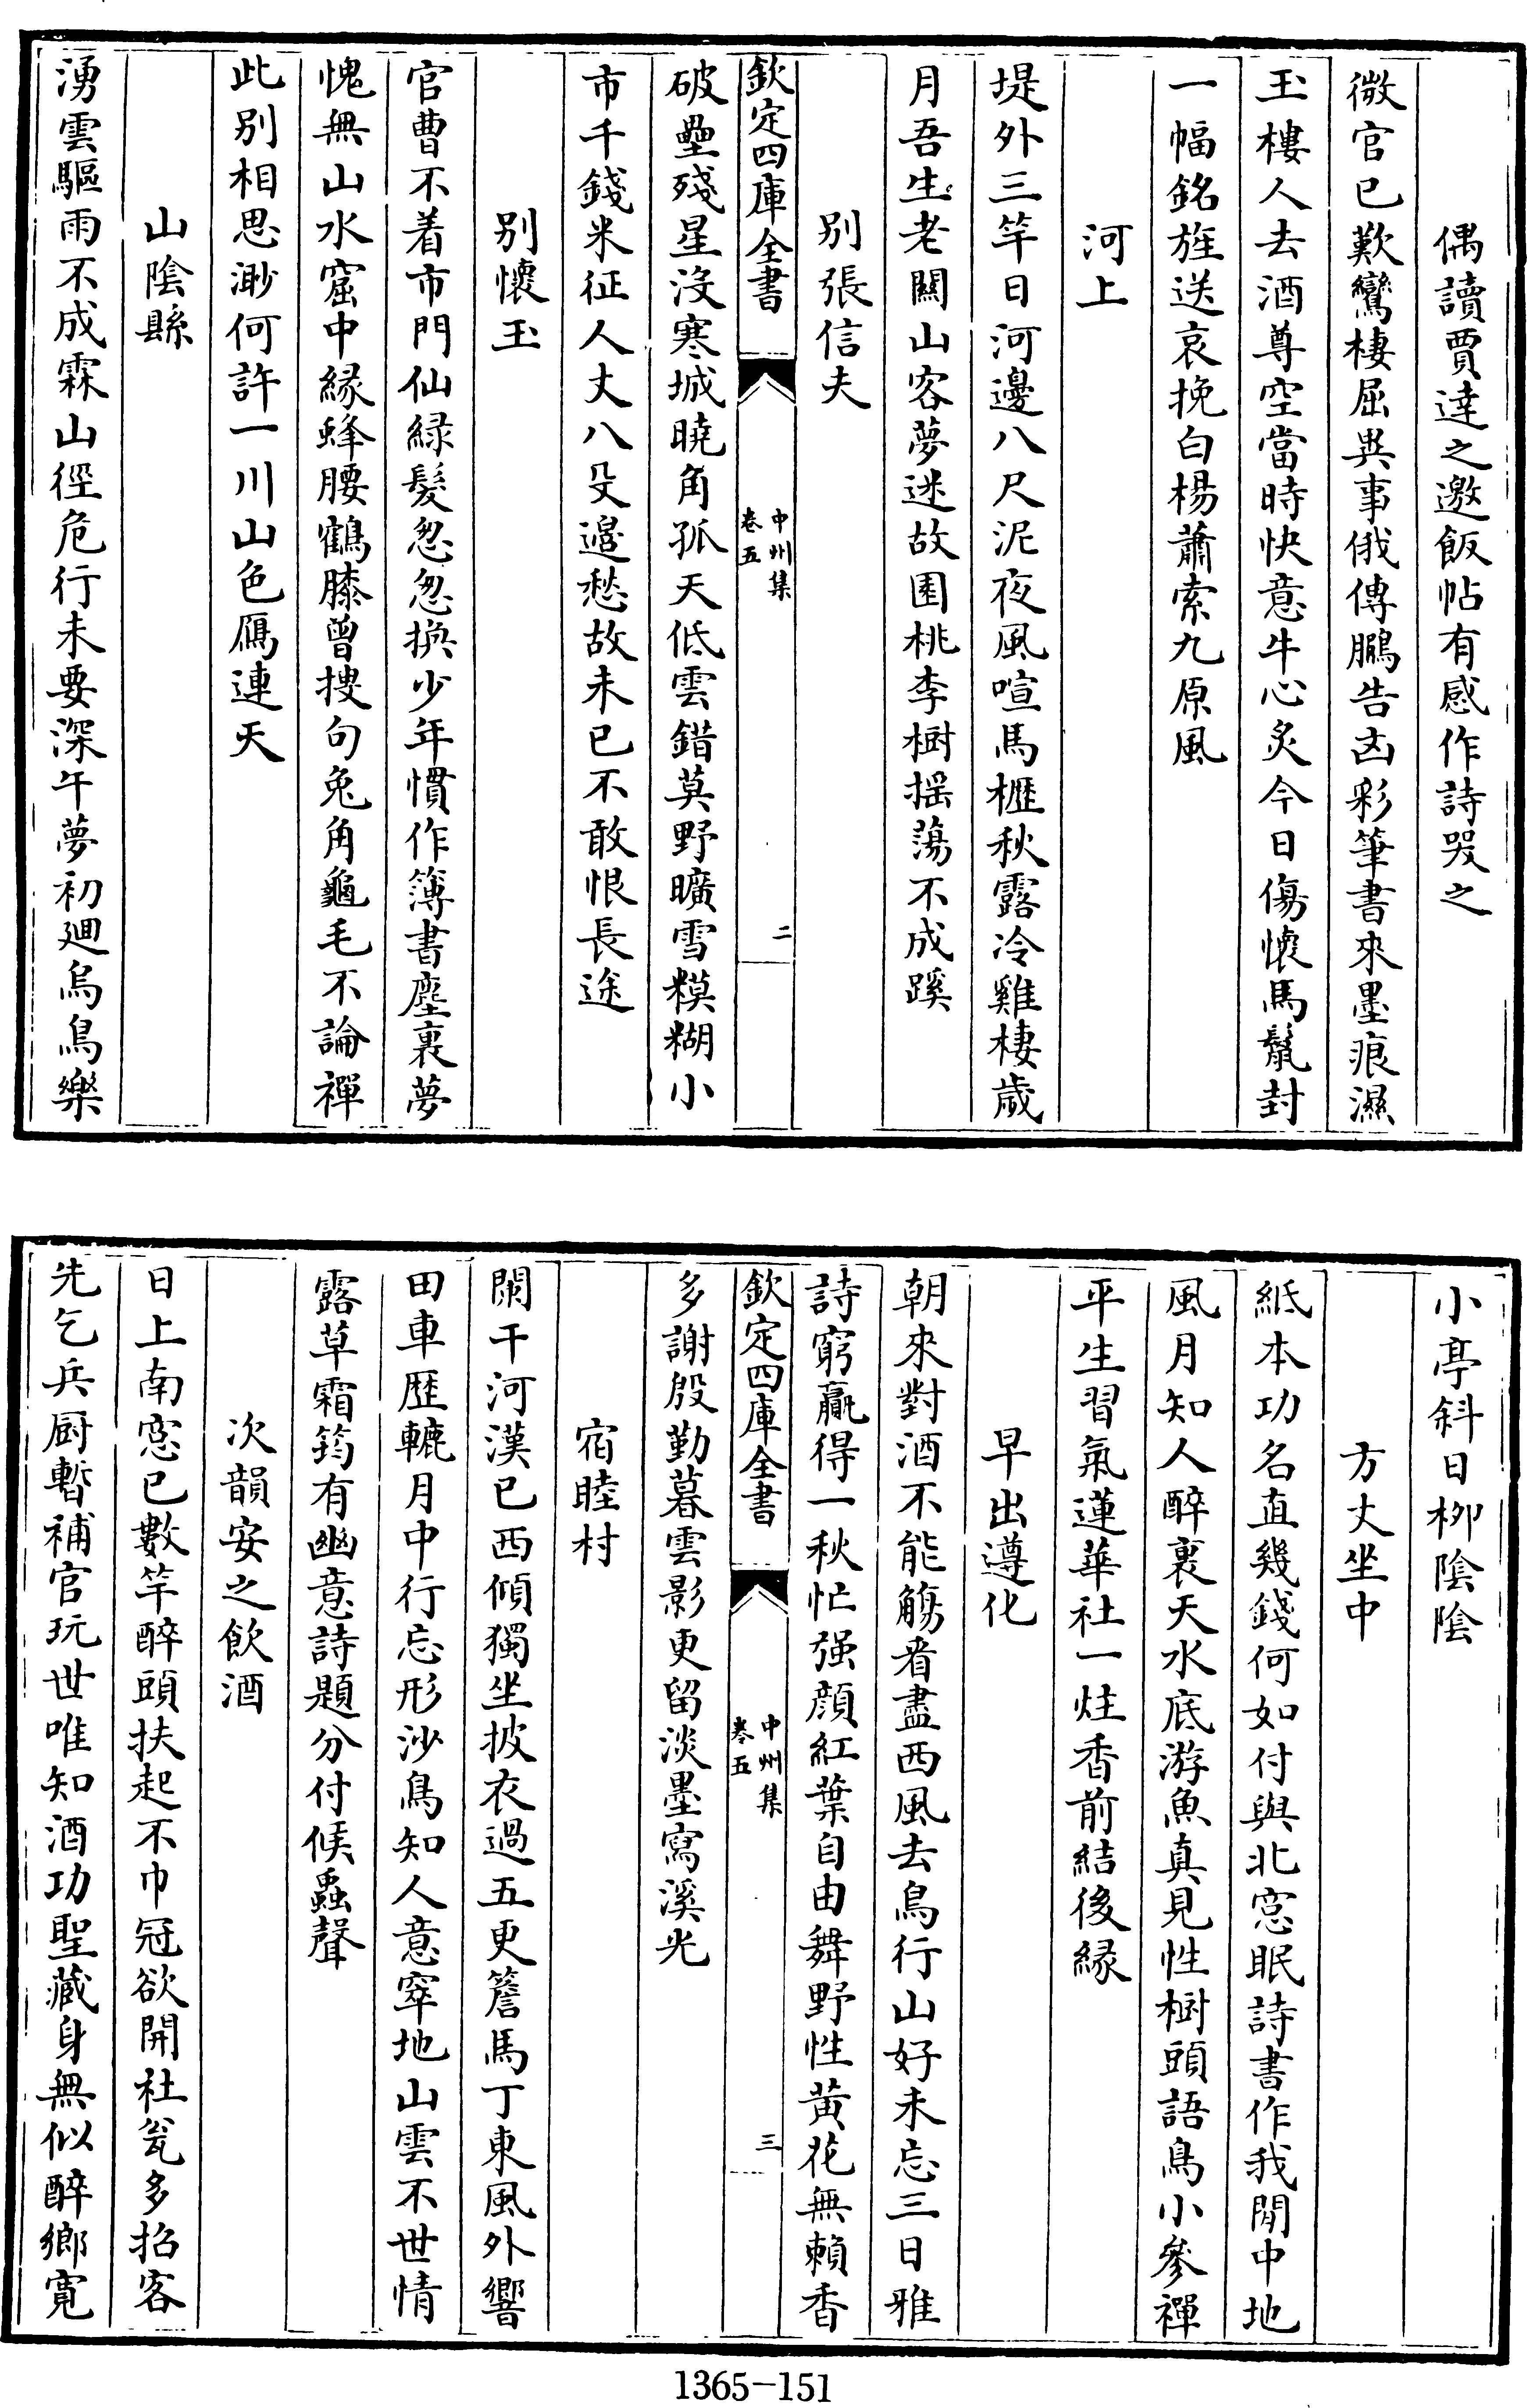 偶讀賈達之邀飯帖有感作詩哭之
微官已歎鸞棲屈異事俄傳鵩告凶彩筆書來墨痕濕
玉樓人去酒尊空當時快意牛心炙今日傷懷馬鬛封
一幅銘旌送哀挽白楊蕭索九原風
河上
堤外三竿日河邊八尺泥夜風喧馬櫪秋露冷雞棲歲
月吾生老關山客夢迷故園桃李樹揺蕩不成蹊
別張信夫
欽定四庫全書
中州集
卷五
二
破壘殘星沒寒城曉角孤天低雲錯莫野曠雪糢糊小
市千錢米征人丈八殳邉愁故未已不敢恨長途
別懷玉
官曹不着市門仙緑髮怱怱換少年慣作簿書塵裏夢
愧無山水窟中緣蜂腰鶴膝曾搜句兔角龜毛不論禪
此別相思渺何許一川山色鴈連天
山陰縣
湧雲驅雨不成霖山徑危行未要深午夢初廻烏鳥樂
小亭斜日柳陰陰
方丈坐中
紙本功名直幾錢何如付與北窓眠詩書作我閒中地
風月知人醉裏天水底游魚真見性樹頭語鳥小參禪
平生習氣蓮華社一炷香前結後緣
早出遵化
朝來對酒不能觴看盡西風去鳥行山好未忘三日雅
詩窮贏得一秋忙强顔紅葉自由舞野性黃花無賴香
欽定四庫全書
中州集
卷五
三
多謝殷勤暮雲影更留淡墨寫溪光
宿睦村
闌干河漢已西傾獨坐披衣過五更簷馬丁東風外響
田車歷轆月中行忘形沙鳥知人意窣地山雲不世情
露草霜筠有幽意詩題分付候蟲聲
次韻安之飲酒
日上南窓已數竿醉頭扶起不巾冠欲開社瓮多招客
先乞兵厨暫補官玩世唯知酒功聖藏身無似醉鄉寛
1365-151